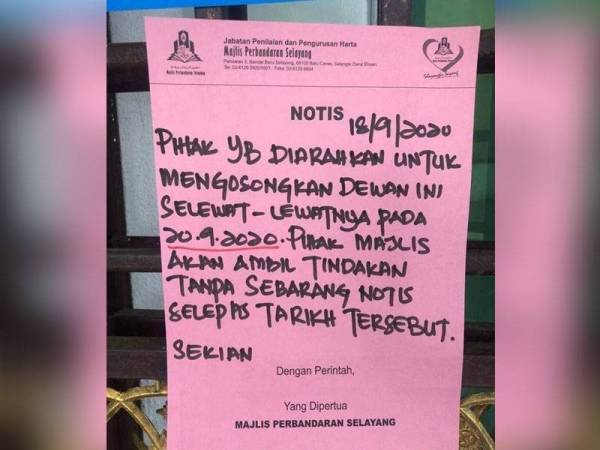 Jabatan Penilaian dan Pengurusan Harta
Majlis Perbandaran Selayang
NOTIS
18/9/2020
PIHAK YB DIARAHKAN UNTUK
MENGOSONGKAN DEWAN INI
SELEWAT-LEWATNYA PADA
20.9.2020. PIHAK MAJLIS
AKAN AMBIL TINDAKAN
TANPA SEBARANG NOTIS
SELEPAS TARIKH TERSEBUT.
SEKIAN
Dengan Perintah,
Yang Dipertua
MAJLIS PERBANDARAN SELAYANG